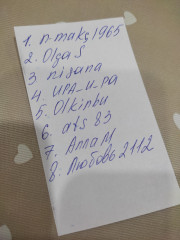 1. n-makc1965
2. Olga S
3 nisana
4 UPA_U_pa
5. Olkinbu
6. ats 83
7. Алла М
8. Любовь 2112